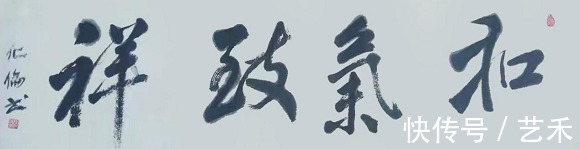 和氣致祥
快传号/艺禾